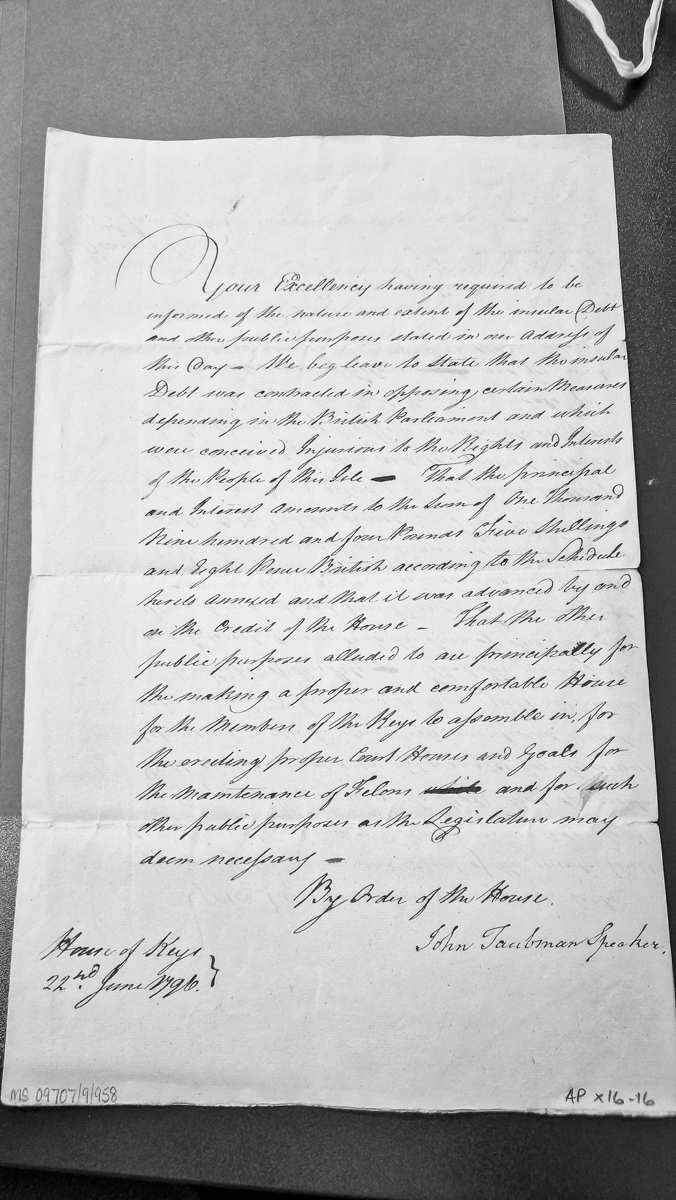 Your Excellency having required to be
informed of the nature and extent of the insular Debt
and other public purposes stated in our Address of
this Day — We beg leave to State that the insular
Debt was contracted in opposing certain Measures
depending in the British Parliament and which
were conceived Injurious to the Rights and Interests
of the People of this Isle — That the principal
and Interest amounts to the Sum of One Thousand
Nine hundred and four Pounds Five Shillings
and Eight Pence British according to the Schedule
hereto annexed and that it was advanced by and
on the Credit of the House — That the other
public purposes alluded to are principally for
the making a proper and comfortable House
for the Members of the Keys to assemble in, for
the erecting proper Court Houses and Goals for
the Maintenance of Felons and for such
other public purposes as the Legislature may
deem necessary —
By Order of the House.
John Taubman Speaker.
House of Keys
22nd June 1796.
MS 09707/9/958
AP x16-16